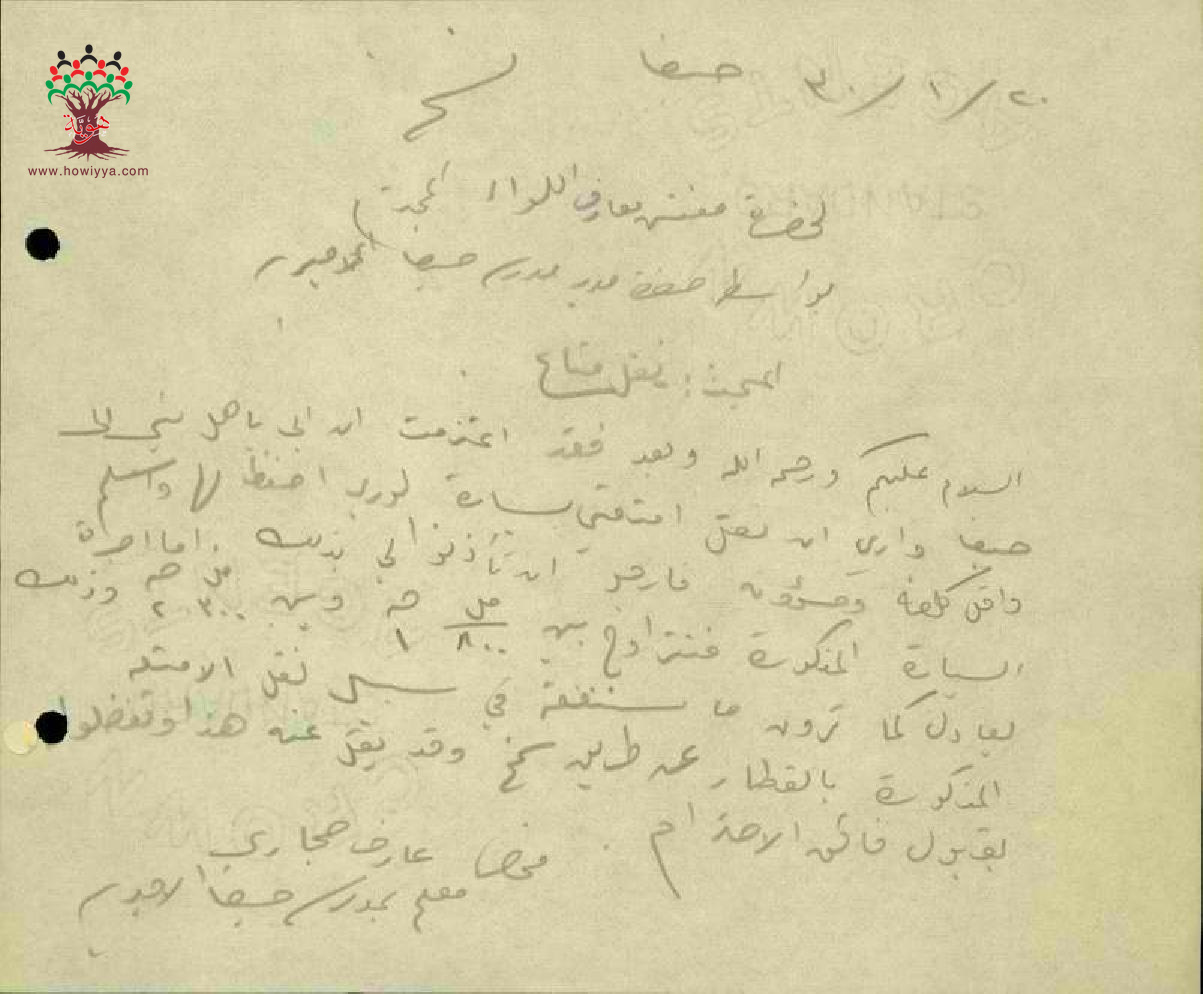 هوية
www.howiyya.com
٢٠/١/٣٠ حيفا
نسخ
لحضرة مفتش معارف اللواء المحترم
بواسطة حضرة مدير مدرسة حيفا الاميرية
المبحث: نقل متاع
السلام عليكم ورحمة الله وبعد فقد اعتزمت ان اتي باهل بيتي الى
حيفا واري ان نقل امتعتي بسيارة لوري احفظ لها واسلم
واقل كلفة ومسؤولية فارجو ان تأذنوا لي بذلك. اما اجرة
السيارة المذكورة فتتراوح بين مل ٨٠٠ جـ ١ وبين مل ٣٠٠ جـ ٢ وذلك
يعادل كما ترون ما سننفقه في سبيل نقل الامتعة
المذكورة بالقطار عن طريق سمخ وقد يقل عنه هذا وتفضلوا
بقبول فائق الاحترام.
مخلص عارف حجازي
معلم بمدرسة حيفا الاميرية